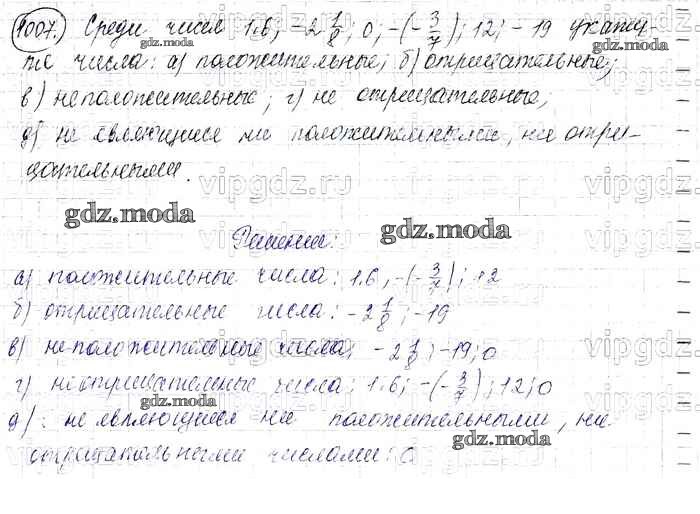 1007. Среди чисел 1.6; -2 1/8; 0; -(-3/7); 12; -19 укажи-
gdz.moda gdz.moda gdz.moda
те числа: а) положительные; б) отрицательные;
в) неположительные; г) не отрицательные;
д) не являющиеся ни положительными, ни отри-
цательными.
vipgdz.ru vipgdz.ru
gdz.moda gdz.moda
Решение:
а) положительные числа: 1.6, -(-3/7); 12
б) отрицательные числа: -2 1/8; -19
в) неположительные числа; -2 1/8; -19; 0
г) неотрицательные числа: 1.6; -(-3/7); 12; 0
gdz.moda gdz.moda
д): не являющиеся ни положительными, ни
gdz.moda
отрицательными числами: 0